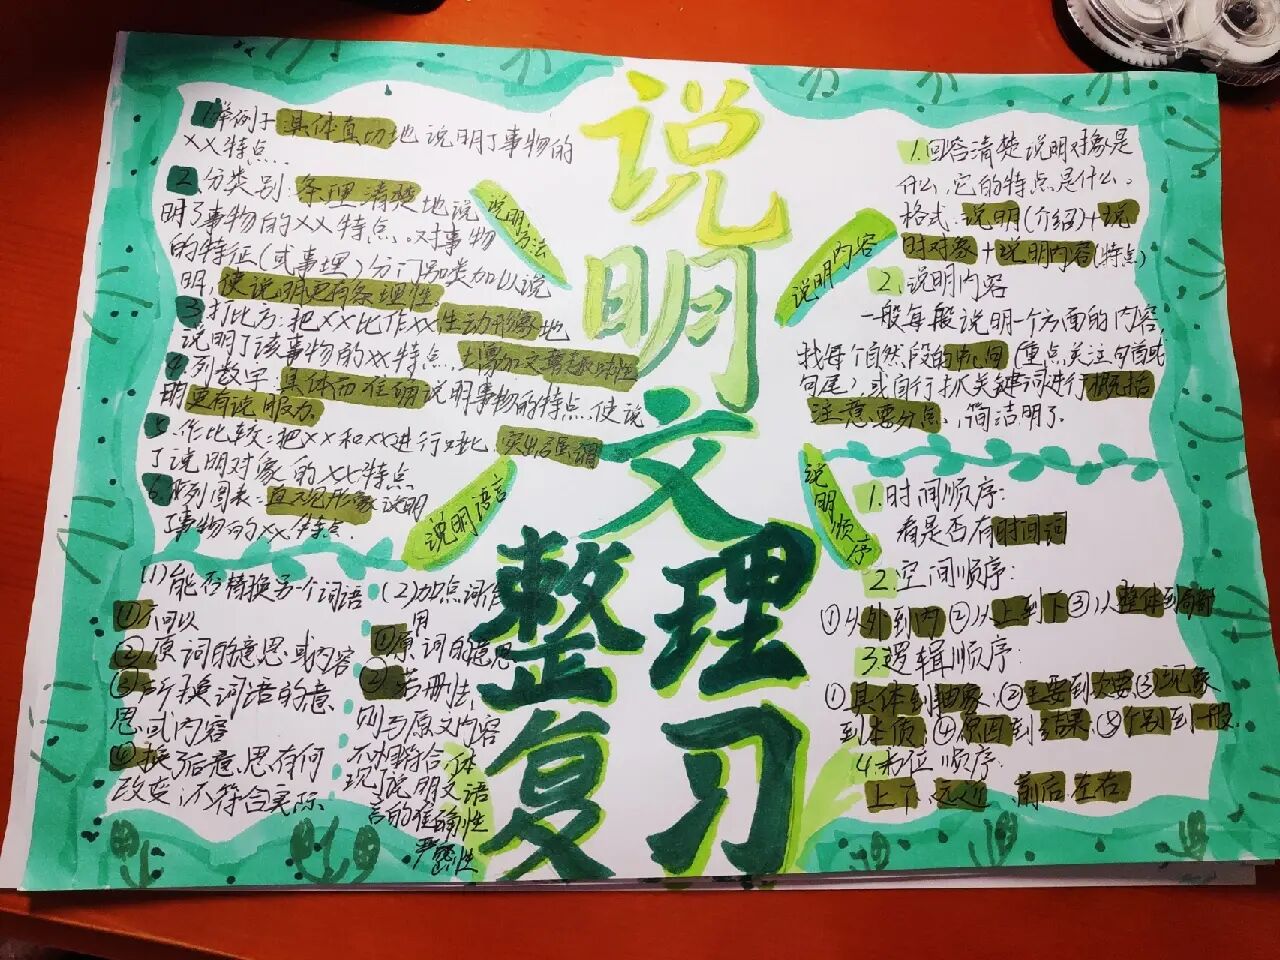 说
明
文
整理
复习
说明方法
1.举例子 具体真切地说明了事物的
XX特点...
2.分类别:条理清楚地说
明了事物的XX特点.对事物
的特征(或事理)分门别类加以说
明,使说明更有条理性
3.打比方:把XX比作XX生动形象地
说明了该事物的XX特点.
4.列数字:具体而准确说明事物的特点.使说
明更有说服力
5.作比较:把XX和XX进行对比,突出强调
了说明对象的XX特点
6.列图表:直观形象说明
了事物的XX特点.
说明语言
(1)能否替换另一个词语
①不可以
②原词的意思或内容
③所换词语的意
思或内容
④换了后意思有何
改变,不符合实际
(2)加点词作
用
①原词的意思
②若删去,
则与原文内容
不相符合,体
现了说明文语
言的准确性
严密性
说明内容
1.回答清楚说明对象是
什么,它的特点是什么.
格式:说明(介绍)+说
明对象+说明内容(特点)
2.说明内容
一般每段说明一个方面的内容,
找每个自然段的中心句(重点关注句首或
句尾)或自行抓关键词进行概括
注意要分点,简洁明了.
说明顺序
1.时间顺序:
看是否有时间词
2.空间顺序:
①从外到内②从上到下③从整体到局部
3.逻辑顺序:
①具体到抽象.②主要到次要③现象
到本质,④原因到结果.⑤个别到一般.
4.方位顺序:
上下,远近,前后,左右.